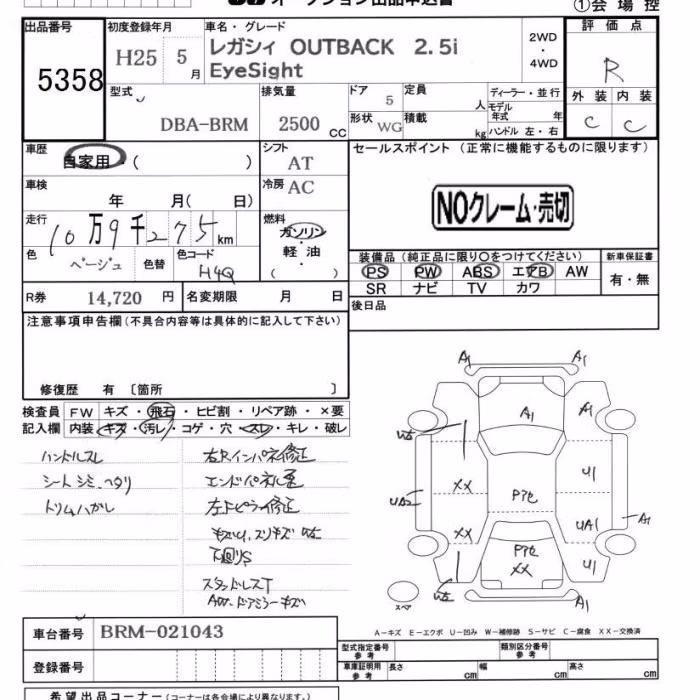 オークション出品申込書
①会場控
出品番号 初度登録年月 車名・グレード 評価点
5358 H25 5月 レガシィ OUTBACK 2.5i 2WD・4WD R
EyeSight
型式 排気量 ドア 定員 ディーラー・並行 外装 内装
DBA-BRM 2500 CC 5 人 モデル年式 年 C C
形状 WG 積載 kg ハンドル 左・右
車歴 自家用・( ) シフト AT セールスポイント (正常に機能するものに限ります)
車検 年 月( 日) 冷房 AC
NOクレーム・売切
走行 10万9千275km 燃料 ガソリン・軽油・( )
色 ベージュ 色替 色コード H4Q
装備品 (純正品に限り○をつけてください) 新車保証書
PS PW ABS エアB AW 有・無
SR ナビ TV カワ
R券 14,720 円 名変期限 月 日 後日品
注意事項申告欄 (不具合内容等は具体的に記入して下さい)
修復歴 有 〔箇所 〕
検査員 FW キズ・飛石・ヒビ割・リペア跡・×要
記入欄 内装 キズ・汚レ・コゲ・穴・スレ・キレ・破レ
ハンドルスレ 右Rインパネ修正
シートシミ、ヘタリ エンドパネル歪
トリムハガレ 左Fピラー修正
下廻りS
スタッドレスT
ドアミラーキズ
A1 A1
A1 A1
XX P穴 U1
UA2 UA1 A1
XX P穴 XX U1
A1
スペア
A-キズ E-エクボ U-凹み W-補修跡 S-サビ C-腐食 XX-交換済
車台番号 BRM-021043
登録番号
型式指定番号 参考 類別区分番号 参考
車庫証明用 参考 長さ cm 幅 cm 高さ cm
希望出品コーナー (コーナーは各会場により異なります。)